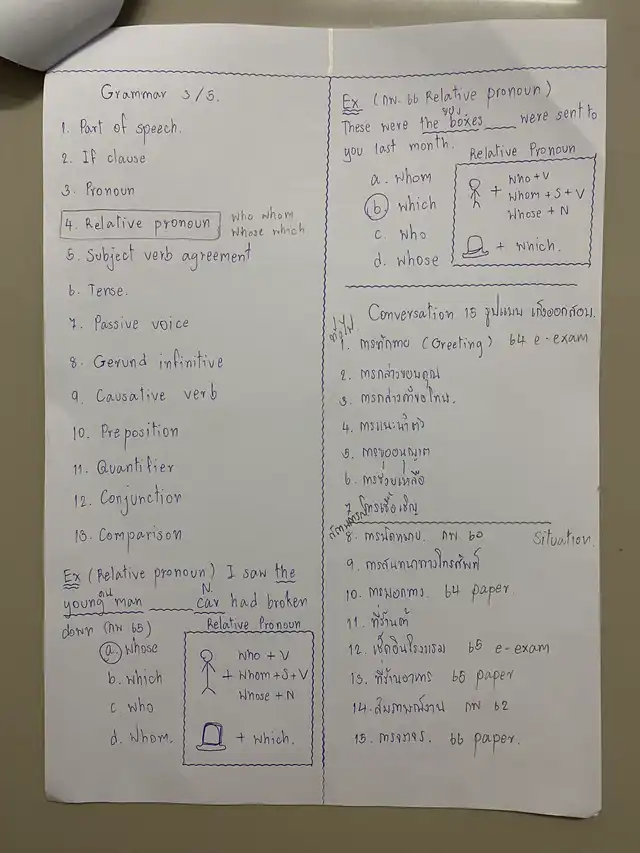 Grammar 3/5.
1. Part of speech.
2. If clause
3. Pronoun
4. Relative pronoun who whom
whose which
5. Subject verb agreement
6. Tense.
7. Passive voice
8. Gerund infinitive
9. Causative verb
10. Preposition
11. Quantifier
12. Conjunction
13. Comparison
Ex (Relative pronoun) I saw the
คน N.
young man ____ car had broken
down (กพ 65)
a. whose
b. which
c who
d. whom.
Relative Pronoun
Who + V
+ Whom + S + V
Whose + N
+ which.
Ex (กพ. 66 Relative pronoun)
ของ
These were the boxes ____ were sent to
you last month.
a. whom
b. which
c. who
d. whose
Relative Pronoun
Who + V
+ Whom + S + V
Whose + N
+ which.
Conversation 15 รูปแบบ เก็งออกสอบ.
ทั่วไป
1. การทักทาย (Greeting) 64 e-exam
2. การกล่าวขอบคุณ
3. การกล่าวคำขอโทษ.
4. การแนะนำตัว
5. การขออนุญาต
6. การช่วยเหลือ
7. การเชื้อเชิญ
8. การนัดหมาย. กพ 60 Situation.
9. การสนทนาทางโทรศัพท์
10. การบอกทาง. 64 paper
11. ที่ร้านค้า
12. เช็คอินโรงแรม 65 e-exam
13. ที่ร้านอาหาร 65 paper
14. สัมภาษณ์งาน กพ 62
15. การจราจร. 66 paper.